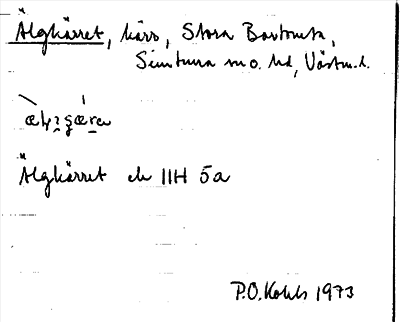 Älgkärret, kärr, Stora Bastmora,
Simtuna sn o. hd, Västm.l.
Älgkärret ek IIH 5a
P.O. Kohls 1973